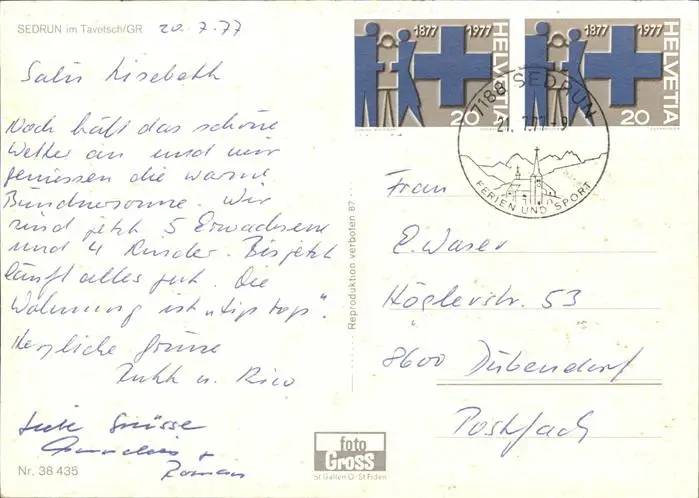 SEDRUN im Tavetsch/GR 20.7.77
Salü Lisebeth
Noch hält das schöne
Wetter an und wir
geniessen die warme
Bündnersonne. Wir
sind jetzt 5 Erwachsene
und 4 Kinder. Bis jetzt
läuft alles gut. Die
Wohnung ist "tip top".
Herzliche Grüsse
Ruth u. Rico
Liebe Grüsse
+
Romain
Nr. 38 435
Reproduktion verboten 87
foto
GROSS
St Gallen O - St Fiden
1877 1977
HELVETIA
20
1877 1977
HELVETIA
20
7188 SEDRUN
21.7.77-9
FERIEN UND SPORT
Frau
E. Waser
Höglerstr. 53
8600 Dübendorf
Postfach